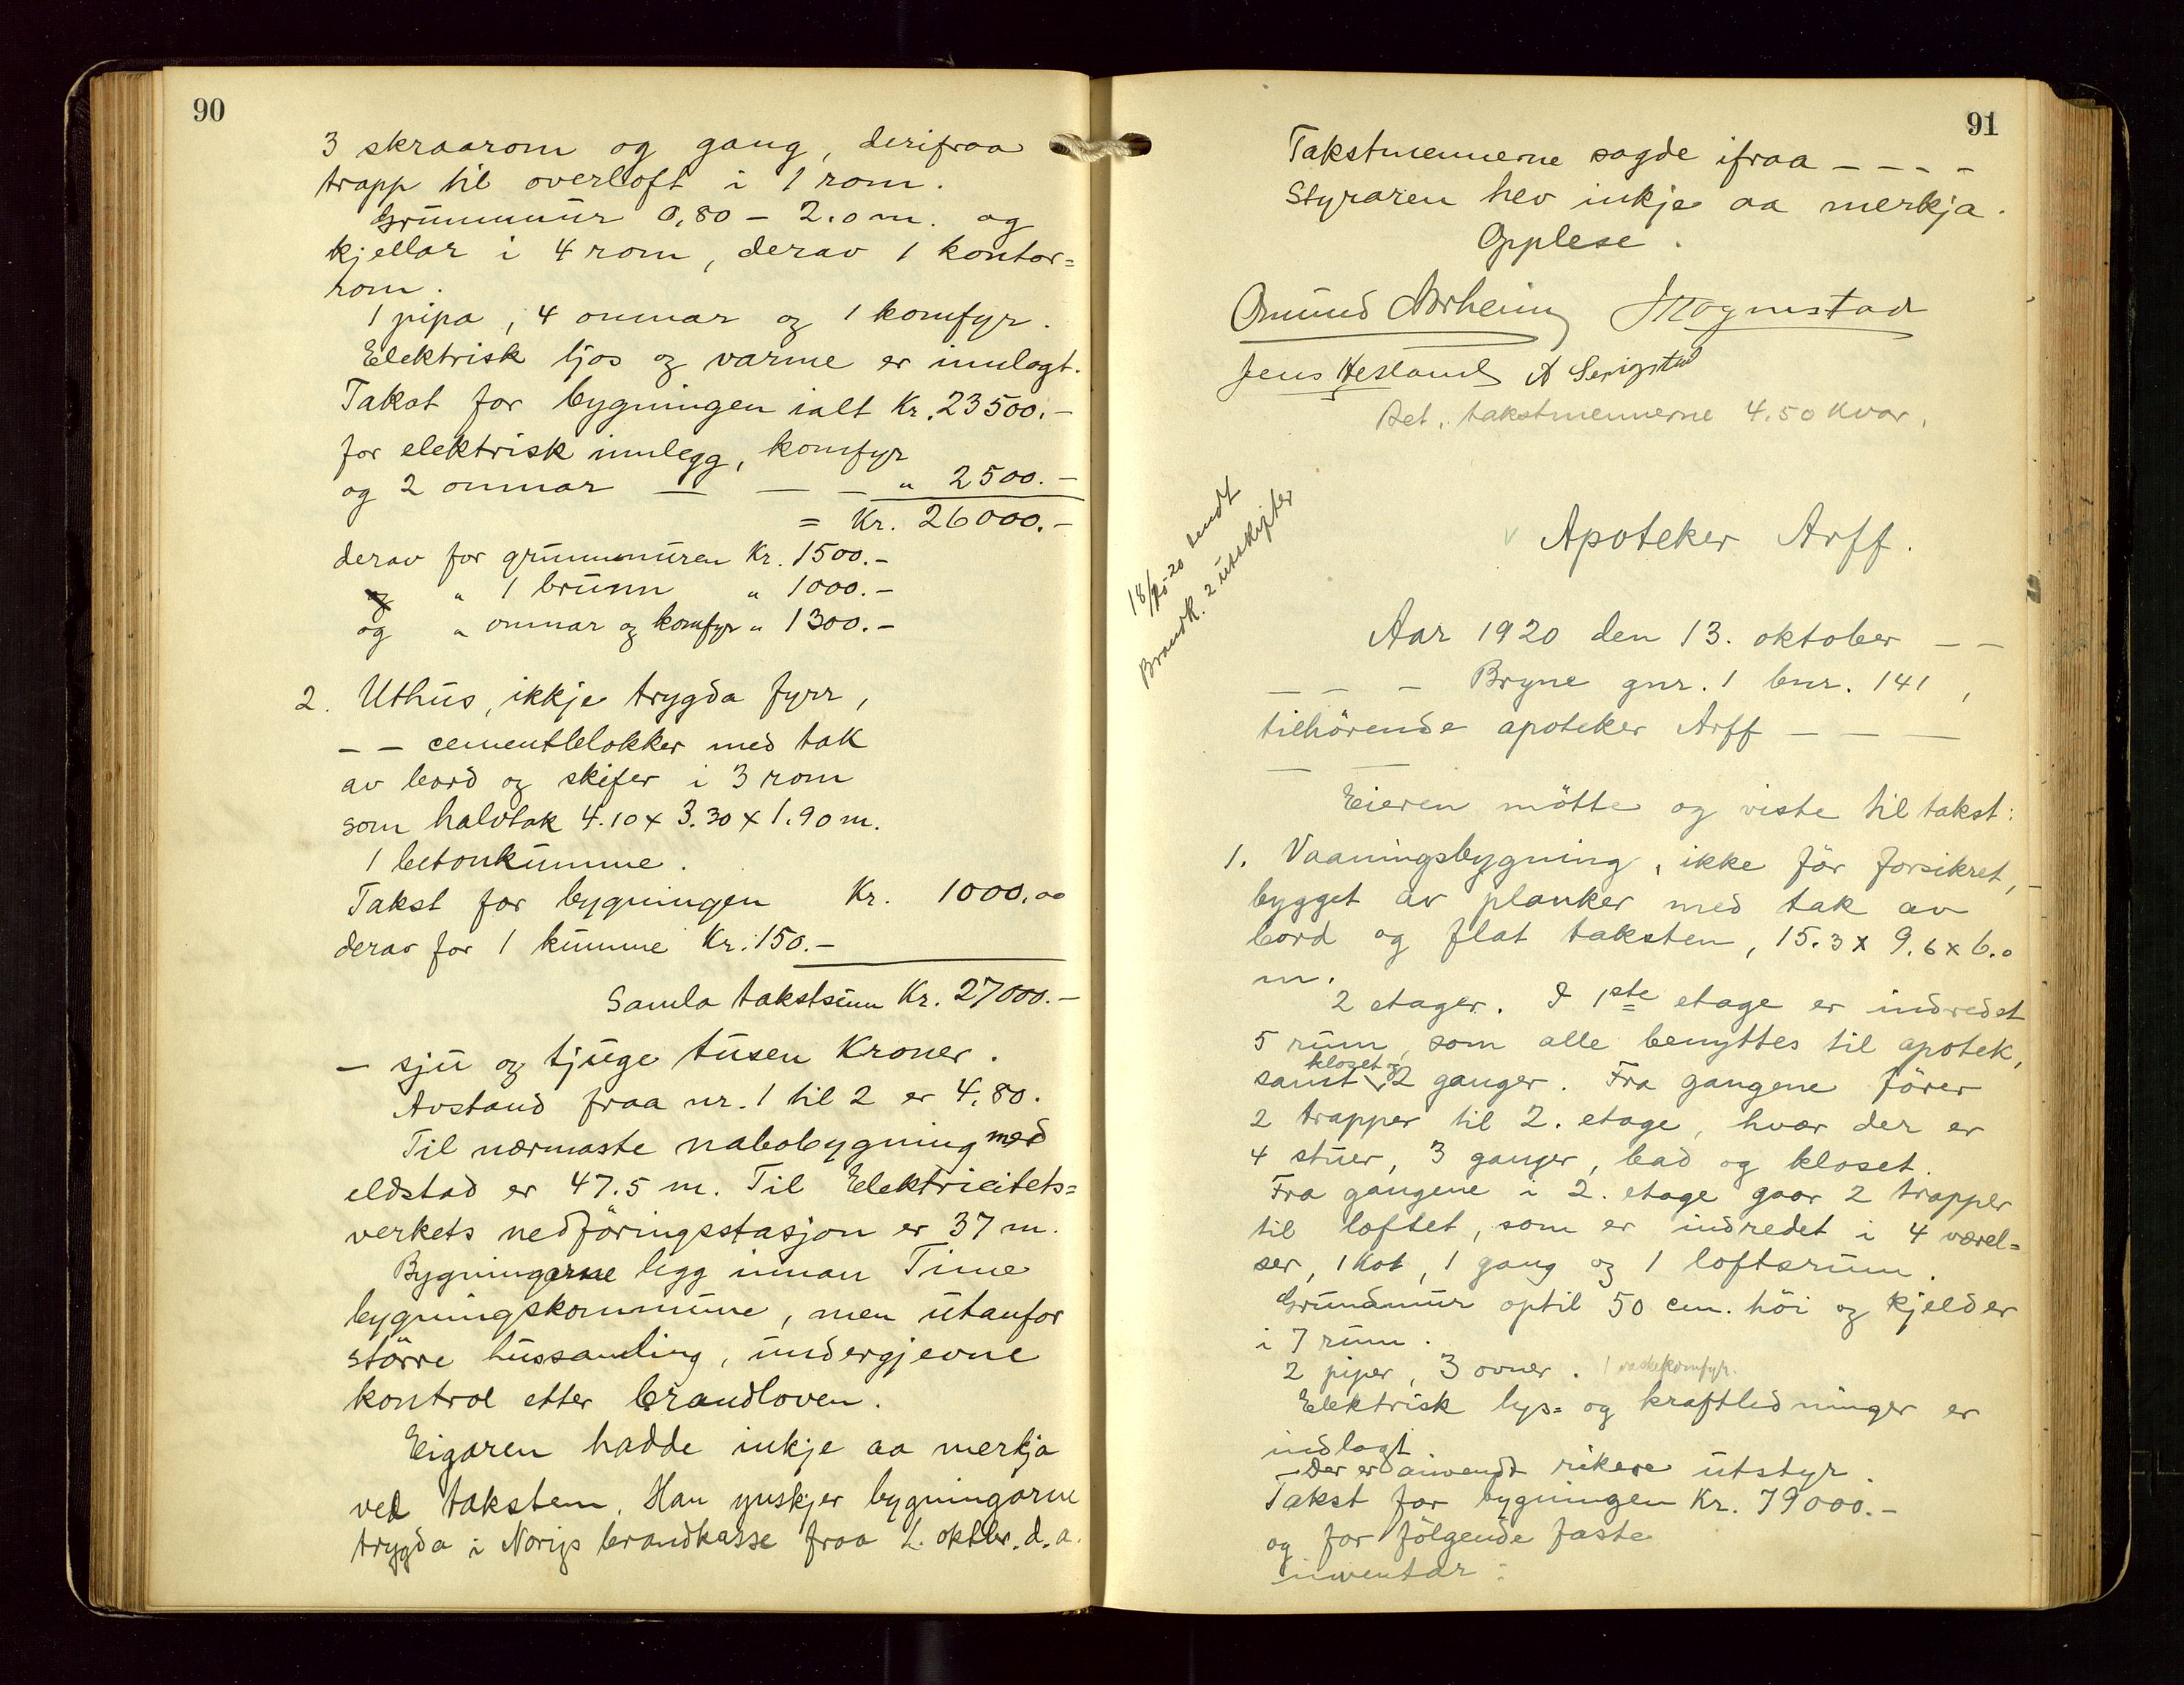 90
3 skraarom og gang, derifraa
trapp til overloft i 1 rom.
Grunnmur 0,80 – 2.0 m. og
kjellar i 4 rom, derav 1 kontor=
rom.
1 pipa, 4 omnar og 1 komfyr.
Elektrisk ljos og varme er innlagt.
Takst for bygningen ialt Kr. 23500.–
for elektrisk innlegg, komfyr
og 2 omnar — — — " 2500.–
= Kr. 26000.–
derav for grunnmuren Kr. 1500.–
" 1 brunn " 1000.–
og " omnar og komfyr " 1300.–
2. Uthus, ikkje trygda fyrr,
– – cementblokker med tak
av bord og skifer i 3 rom
som halvtak 4.10 x 3.30 x 1.90 m.
1 betonkumme.
Takst for bygningen Kr. 1000.00
derav for 1 kumme Kr. 150.–
Samla takstsum Kr. 27000.–
– sju og tjuge tusen Kroner.
Avstand fraa nr. 1 til 2 er 4.80.
Til nærmaste nabobygning med
eldstad er 47.5 m. Til Elektricitets=
verkets nedföringsstasjon er 37 m.
Bygningarne ligg innan Time
bygningskommune, men utanfor
större hussamling, undergjevne
kontrol etter brandloven.
Eigaren hadde inkje aa merkja
ved taksten. Han ynskjer bygningarne
trygda i Norigs brandkasse fraa 1. oktbr. d. a.
91
Takstmennerne sagde ifraa – – – –
Styraren hev inkje aa merkja.
Opplese.
Omund Norheim J Mognstad
Jens Hesland A Serigstad
Bet. takstmennerne 4.50 kvar.
18/10-20 sendt
Brandk. 2 utskrifter
v Apoteker Arff.
Aar 1920 den 13. oktober – –
– – – Bryne gnr. 1 bnr. 141,
tilhörende apoteker Arff – – –
–
Eieren mötte og viste til takst:
1. Vaaningsbygning, ikke för forsikret,
bygget av planker med tak av
bord og flat taksten, 15.3 x 9.6 x 6.0
m.
2 etager. I 1ste etage er indredet
5 rum, som alle benyttes til apotek,
samt kloset og 2 ganger. Fra gangene förer
2 trapper til 2. etage, hvor der er
4 stuer, 3 ganger, bad og kloset.
Fra gangene i 2. etage gaar 2 trapper
til loftet, som er indredet i 4 værel=
ser, 1 kot, 1 gang og 1 loftsrum.
Grundmur optil 50 cm. höi og kjelder
i 7 rum.
2 piper, 3 ovner. 1 vaskekomfyr.
Elektrisk lys= og kraftledninger er
indlagt.
– Der er anvendt rikere utstyr.
Takst for bygningen Kr. 79000.–
og for fölgende faste
inventar: